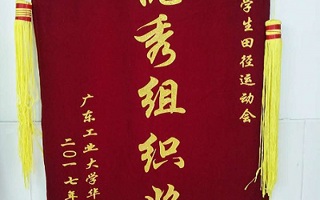 学生田径运动会
优秀组织奖
广东工业大学华
二〇一七年